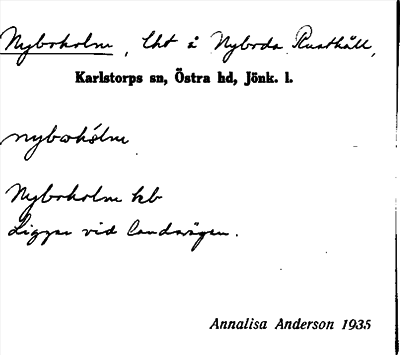 Nybroholm, lht å Nybroda Rusthåll,
Karlstorps sn, Östra hd, Jönk. l.
nybrohólm
Nybroholm kb
Ligger vid landsvägen.
Annalisa Anderson 1935